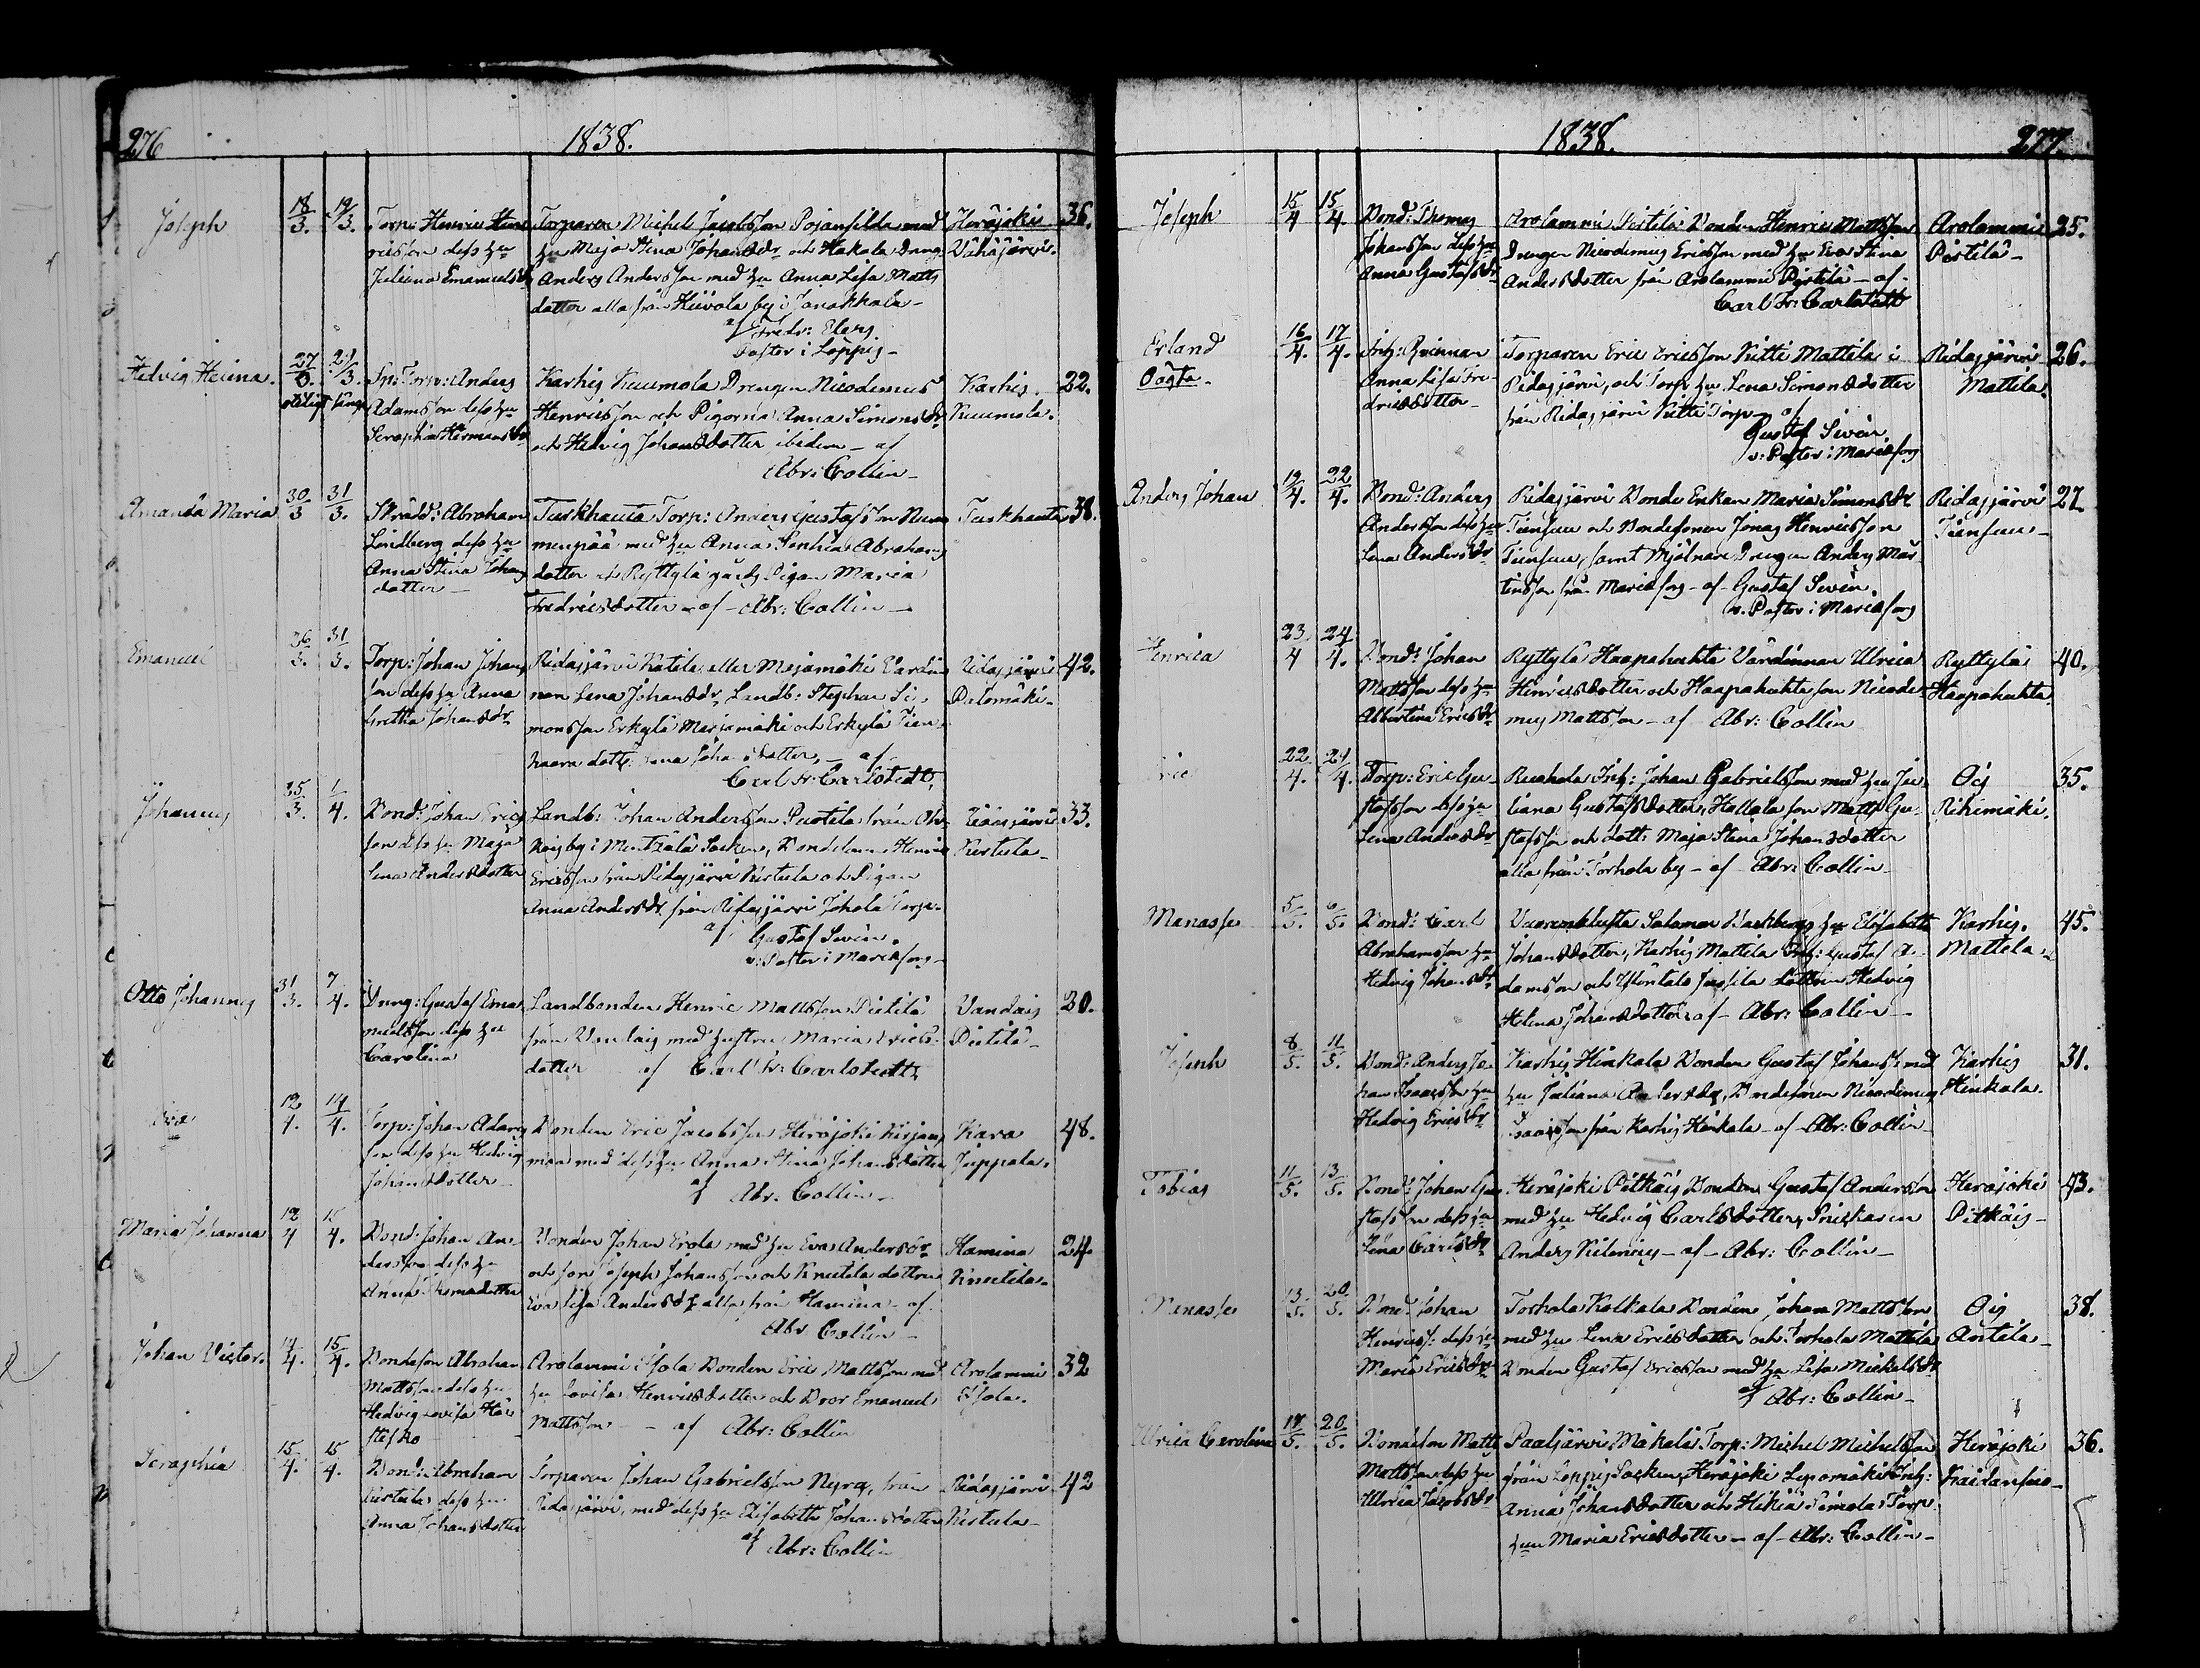 276
1838.
Joseph
18/3. 19/3.
Torp: Henric Hen
ricsson dess hu
Juliana Emanuelsdr
Torparen Michel Jacobsson Pojansilda med
hu Maja Stina Johansdr och Hakala Dreng
Anders Andersson med hu Anna Lisa Matts
dotter alla från Hiivola by i Janakkala
af Fredr: Elers
Pastor i Loppis
Herajoki
Vahajärvi.
36.
Hedvig Helena.
27/3. 27/3.
Torp: Anders
Adamsson dess hu
Seraphia Hermansdr
Karhis Kuumola Drengen Nicodemus
Henricsson och Pigorna Anna Simonsdr
och Hedvig Johansdotter ibidem - af
Abr: Collin
Karhis
Kuumola.
22.
Amanda Maria
30/3 31/3.
Skrädd: Abraham
Lindberg dess hu
Anna Stina Johans
dotter
Turkhauta Torp: Anders Gustafsson Num
menpää med hu Anna Abrahams
dotter och Ryttylä gårds Pigan Maria
Fredricsdotter - af - Abr: Collin -
Turkhauta
38.
Emanuel
26/3. 31/3.
Torp: Johan Johans
son dess hu Anna
Gretha Johansdr
Ridasjärvi Katila eller Mejamäki Värdin
nan Lena Johansdr Landb: Stephan Si
monsson Erkylä Marjamäki och Erkylä
dott: Lena Johansdotter, - af
Carl Fr: Carlstedt,
Ridasjärvi
Palomäki.
42.
Johannes
25/3. 1/4.
Bond: Johan Erics
son dess hu Maja
Lena Andersdotter
Landb: Johan Andersson Puotila från
by i Mentzälä Socken, Bondeson Henric
Ericsson från Ridasjärvi Kirstula och Pigan
Anna Andersdr från Ridasjärvi Johola Torp.
af Gustaf Sirén.
v: Pastor i Mariæfors
Ridasjärvi
Kirstula
33.
Otto Johannes
31/3. 7/4.
Dreng: Gustaf Ema
nuelsson dess hu
Carolina
Landbonden Henric Mattsson Pietilä
från Vandais med hustru Maria Erics
dotter af Carl Fr: Carlstedt
Vandais
Pietilä
20.
Eva
12/4. 14/4.
Torp: Johan Adams
son dess hu Hedvig
Johansdotter
Bonden Eric Jacobsson Herajoki
med dess hu Anna Stina Johansdotter
af Abr: Collin
Kara
Juppala.
48.
Maria Johanna
12/4 15/4.
Bond: Johan An
dersson dess hu
Anna Thomædotter
Bonden Johan Erola med hu Eva Andersdr
och son Joseph Johansson och Knutila dottren
Eva Lisa Andersdr alla från Hamina - af
Abr: Collin
Hamina
Knutila.
24.
Johan Victor.
14/4. 15/4.
Bondeson Abraham
Mattsson dess hu
Hedvig Lovisa
Arolammi Isola Bonden Eric Mattsson med
hu Lovisa Henricsdotter och Bror Emanuel
Mattsson - af Abr: Collin
Arolammi
Isola.
32
Seraphia
15/4. 15/4.
Bond: Abraham
Kirstula dess hu
Anna Johansdotter
Torparen Johan Gabrielsson Nyrq, från
Ridasjärvi, med dess hu Elisabeth Johansdotter
af Abr: Collin
Ridasjärvi
Kirstula
42
1838.
277.
Joseph
15/4 15/4.
Bond: Thomas
Johansson dess hu
Anna Gustafsdr
Arolammi Pietilä Bonden Henric Mattsson
Drengen Nicodemus Ericsson med hu Eva Stina
Andersdotter från Arolammi Pietilä - af
Carl Fr: Carlstedt
Arolammi
Pietilä
25.
Erland
Oägta.
16/4. 17/4.
Inh: Qvinnan
Anna Lisa Fre
dricsdotter
Torparen Eric Ericsson Kitti Mattila i
Ridasjärvi, och Torp: hu Lena Simonsdotter
från Ridasjärvi Kitti Torp - af
Gustaf Sirén,
v: Pastor i Mariæfors
Ridasjärvi
Mattila.
26.
Anders Johan
19/4. 22/4.
Bond: Anders
Andersson dess hu
Lena Andersdr
Ridasjärvi Bonde Enkan Maria Simonsdr
Tiensuu och Bondesonen Jonas Henricsson
Tiensuu, samt Mjölnare Drengen Anders Mår
tensson från Mariæfors - af - Gustaf Sirén,
v. Pastor i Mariæfors
Ridasjärvi
Tiensuu
27.
Henrica
23/4 24/4.
Bond: Johan
Mattsson dess hu
Albertina Ericsdr
Ryttylä Haapahuhta Värdinnan Ulrica
Henricsdotter och Haapahuhta son Nicode
mus Mattsson - af Abr: Collin
Ryttylä
Haapahuhta.
40.
Eric
22/4. 24/4.
Torp: Eric Gu
stafsson dess hu
Lena Andersdr
Ruohola Inh: Johan Gabrielsson med hu Ju
liana Gustafsdotter, Hallala son Matts Gu
stafsson och dott: Maja Stina Johansdotter
alla från Torhola by - af Abr: Collin
Ois
Rihimäki.
35.
Manasse
5/5. 6/5.
Bond: Carl
Abrahamsson hu
Hedvig Johansdr
Salomon Backbergs hu Elisabeth
Johansdotter, Karhis Mattila Inh: Gustaf A
damsson och Jussila dottren Hedvig
Helena Johansdotter af - Abr: Collin
Karhis
Mattela
45.
Joseph
8/5. 11/5.
Bond: Anders Jo
han Isaacsson hu
Hedvig Ericsdr
Karhis Hinkala Bonden Gustaf Johanss: med
hu Juliana Andersdr, Bondesonen Nicodemus
Isaacsson från Karhis Hinkala - af - Abr: Collin
Karhis
Hinkala.
31.
Tobias
11/5. 13/5.
Bond: Johan Gu
stafsson dess hu
Lena Carlsdr
Herajoki Pitkäis Bonden Gustaf Andersson
med hu Hedvig Carlsdotter, Snickaren
Anders Kilenius - af - Abr: Collin
Herajoki
Pitkäis
43.
Manasse
13/5. 20/5.
Bond: Johan
Henricss: dess hu
Maria Ericsdr
Torhola Kolkala Bonden Johan Mattsson
med hu Lena Ericsdotter och Torhola Mattila
Bonden Gustaf Ericsson med hu Lisa Mickelsdr
af Abr: Collin
Ois
Antila
38.
Ulrica Carolina
17/5. 20/5.
Bondeson Matts
Mattsson dess hu
Ulrica Jacobsdr
Paaljärvi Mäkelä Torp: Michel Michelsson
från Loppis Socken, Herajoki Leporemäki Inh:
Anna Johansdotter och Hikiä Simola Torp:
hun Maria Ericsdotter - af - Abr: Collin
Herajoki
36.